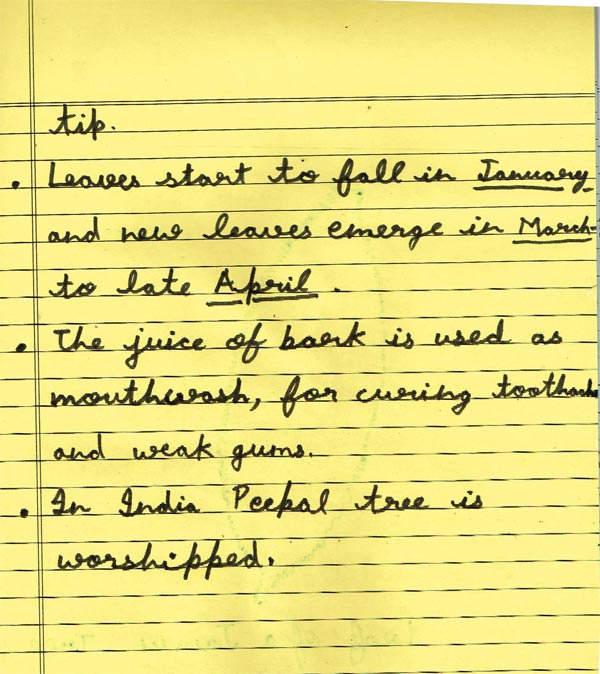 tip.
• Leaves start to fall in January
and new leaves emerge in March-
to late April.
• The juice of bark is used as
mouthwash, for curing toothache
and weak gums.
• In India Peepal tree is
worshipped.